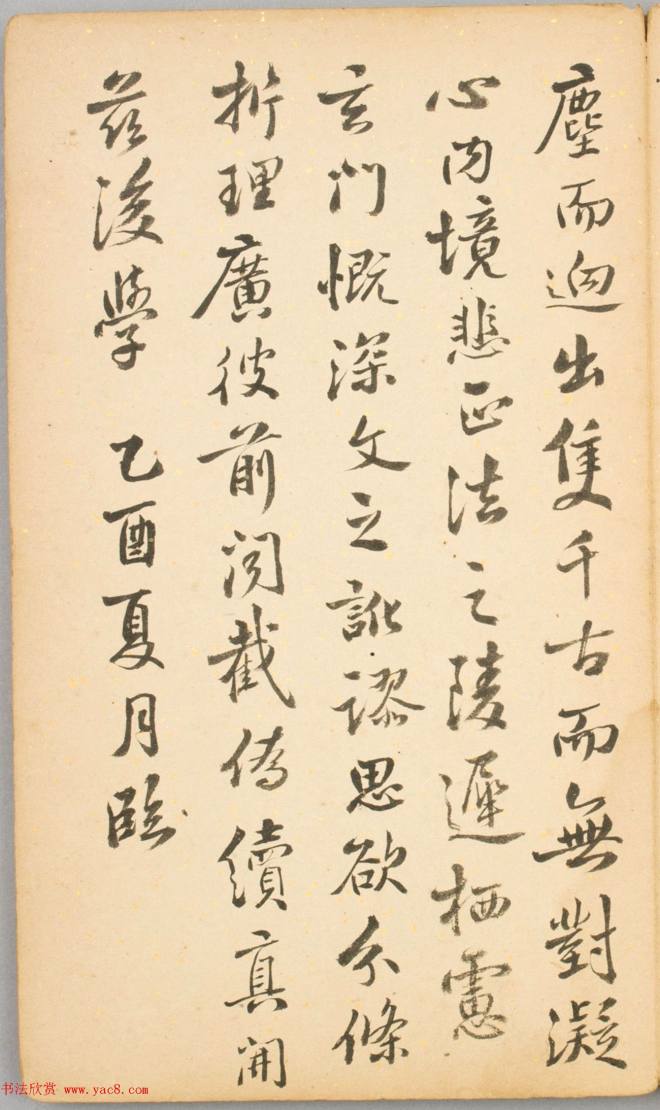 塵而迥出隻千古而無對凝
心内境悲正法之陵遲栖慮
玄門慨深文之訛謬思欲分條
析理廣彼前聞截偽續真開
茲後學 乙酉夏月臨
书法欣赏 www.yac8.com